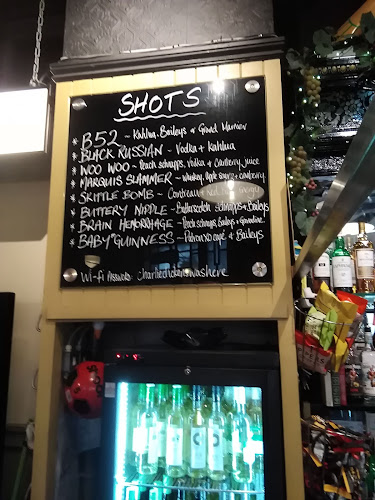 SHOTS
* B52 ~ Kahlua, Baileys & Grand Marnier
* BLACK RUSSIAN - Vodka + Kahlua
* WOO WOO ~ Peach schnapps, Vodka & Cranberry juice
* MARQUIS SLAMMER - Whiskey, Apple sours & cranberry
* SKITTLE BOMB - Cointreau & Red
* BUTTERY NIPPLE - Butterscotch Schnapps & Baileys
* BRAIN HEMORRHAGE - Peach schnapps, Baileys & Grenadine
* BABY GUINNESS - Patron XO café & Baileys
Wi-fi Password: charliedickenswashere